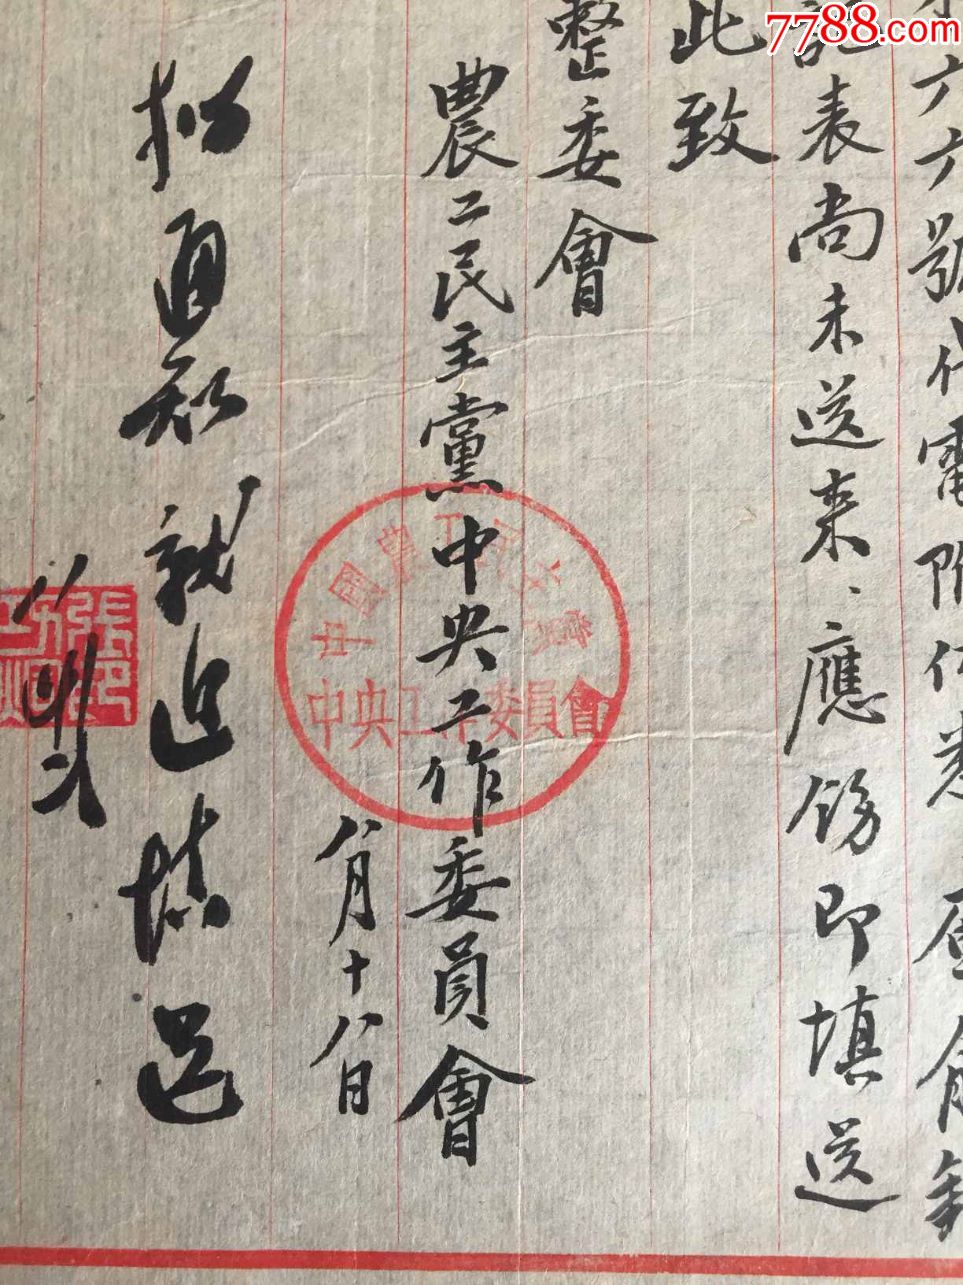 7788.com
六六號代電附件悉
記表尚未送來、應飭即填送
此致
整委會
農工民主黨中央工作委員會
八月十八日
中國農工民主黨
中央工作委員會
擬通知就近填送